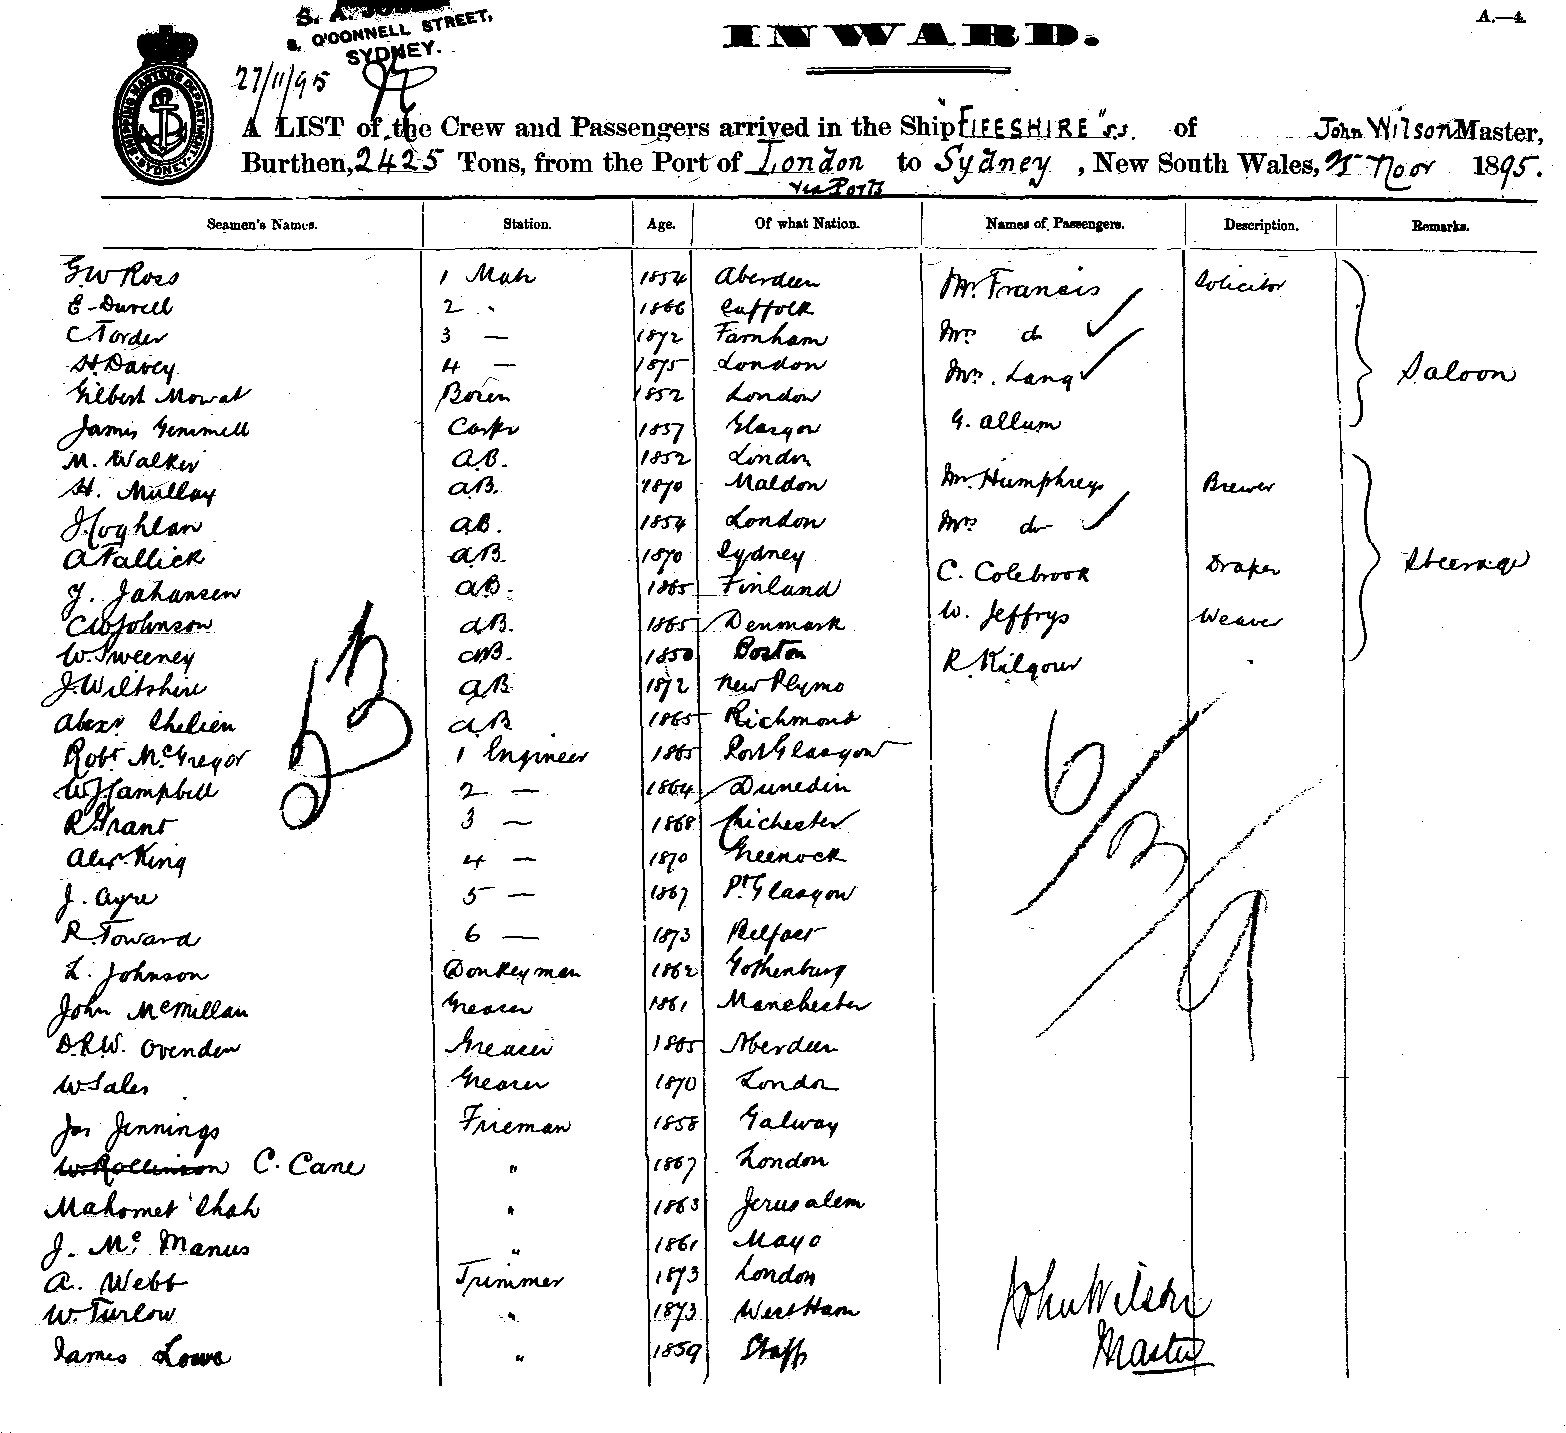 A.—4.
S. A.
8, O'CONNELL STREET,
SYDNEY.
27/11/95
INWARD.
SHIPPING MASTERS DEPARTMENT SYDNEY.
A LIST of the Crew and Passengers arrived in the Ship "FIFESHIRE" s.s. of John Wilson Master,
Burthen, 2425 Tons, from the Port of London to Sydney, New South Wales, Novr 1895.
via Ports
Seamen's Names. Station. Age. Of what Nation. Names of Passengers. Description. Remarks.
G. W Ross 1 Mate 1854 Aberdeen Mr. Francis Solicitor
E. Durell 2 " 1866 Suffolk
C Torder 3 — 1872 Farnham Mrs do
H. Davey 4 — 1875 London Mrs. Lang Saloon
Gilbert Mowat Bosen 1852 London
James Gemmell Carpr 1857 Glasgow G. Allum
M. Walker A.B. 1852 London
H. Mullay A.B. 1870 Maldon Mr. Humphreys Brewer
J Coghlan A.B. 1854 London Mrs do
A Tallick A.B. 1870 Sydney C. Colebrook Draper Steerage
J. Johansen A.B. 1865 Finland
C W Johnson A.B. 1865 Denmark W. Jeffrys Weaver
W. Sweeney A.B. 1850 Boston R. Kilgour
J. Wiltshire A.B. 1872 New Plymo
Alexr. A.B. 1865 Richmond
Robt McGregor 1 Engineer 1865 Port Glasgow
W J Campbell 2 — 1864 Dunedin
R. Grant 3 — 1868 Chichester
Alex. King 4 — 1870 Greenock
J. Ayre 5 — 1867 Pt. Glasgow
R. Toward 6 — 1873 Belfast
L. Johnson Donkeyman 1862 Gothenburg
John McMillan Greaser 1861 Manchester
D.R.W. Ovenden Greaser 1865 Aberdeen
W Sales Greaser 1870 London
Jas Jennings Fireman 1858 Galway
W. Rollinson C. Cane " 1867 London
Mahomet Shah " 1863 Jerusalem
J. McManus " 1861 Mayo
A. Webb Trimmer 1873 London
W. Turlow " 1873 West Ham
James Lowe " 1859 Staff
53
6
3
9
John Wilson
Master